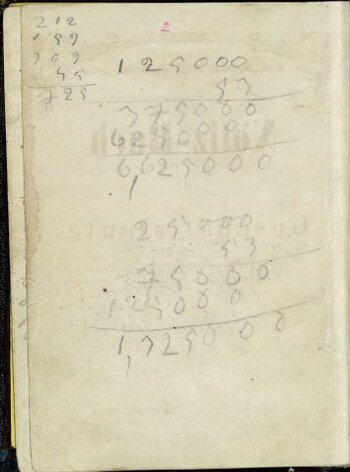 2
212
159
309
55
725
125000
53
375000
625000
6,625000
25000
53
75000
125000
1,325000